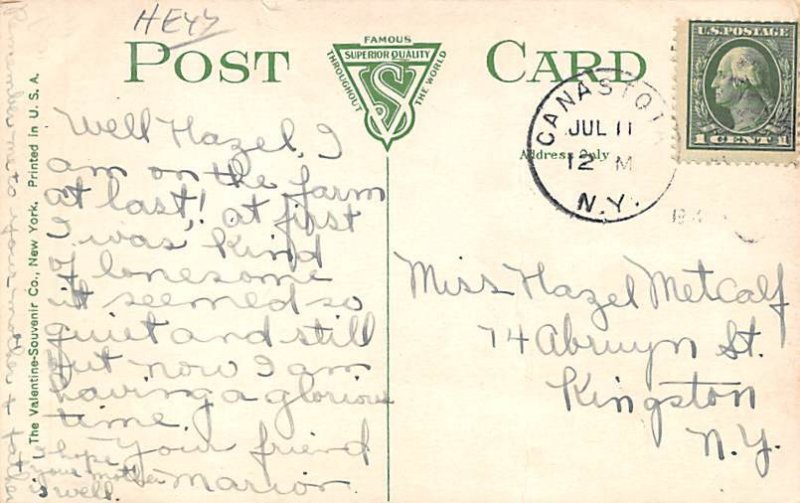 HEYY
POST CARD
FAMOUS
SUPERIOR QUALITY
THROUGHOUT THE WORLD
VS
U.S. POSTAGE
1 CENT 1
CANASTOT
JUL 11
12 M
N.Y.
Address Only
The Valentine-Souvenir Co., New York. Printed in U. S. A.
Well Hazel, I
am on the farm
at last! at first
I was kind
of lonesome
it seemed so
quiet and still
but now I am
having a glorious
time.
Your friend
Marion.
I hope
your mother
is well.
Remember me to your mother +
Miss Hazel Metcalf
74 Abruyn St.
Kingston
N.Y.